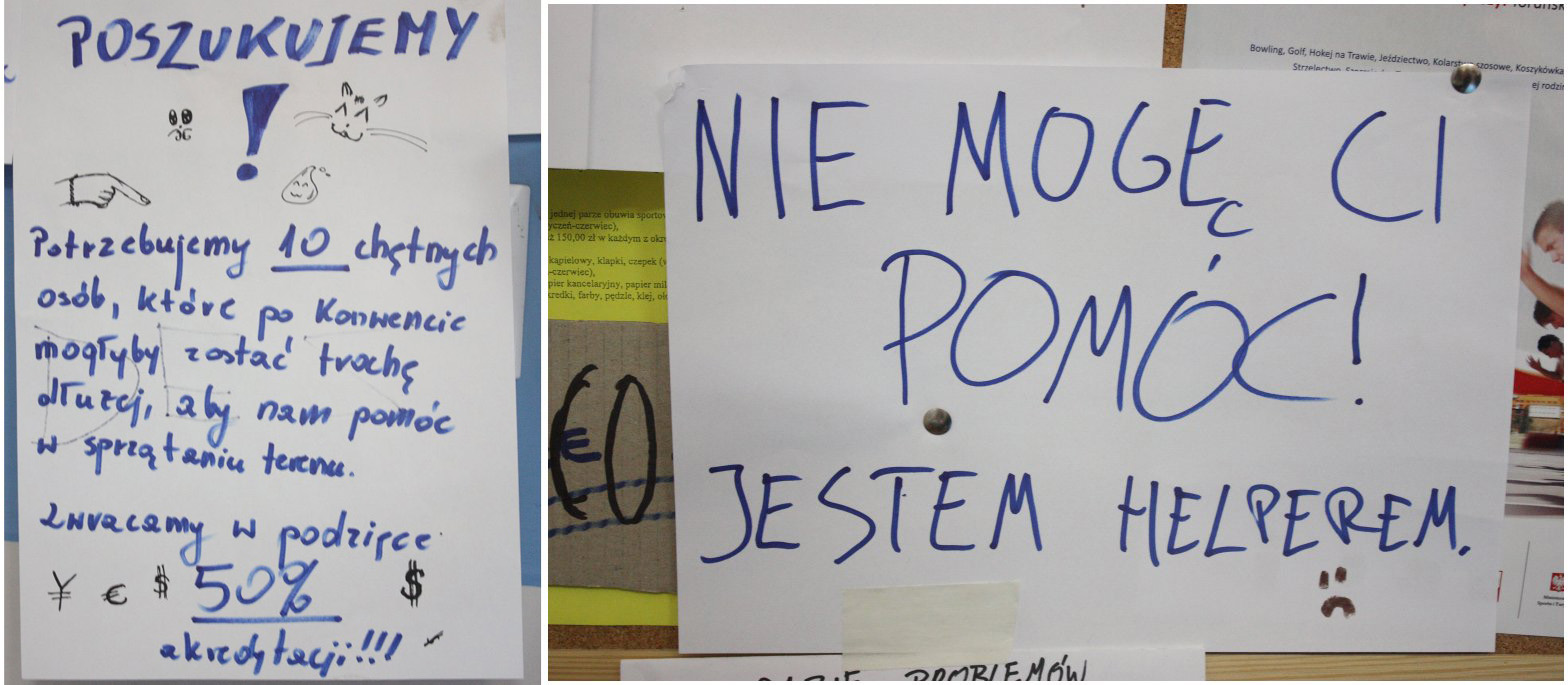 POSZUKUJEMY
!
Potrzebujemy 10 chętnych
osób, które po Konwencie
mogłyby zostać trochę
dłużej, aby nam pomóc
w sprzątaniu terenu.
Zwracamy w podzięce
¥ € $ 50% $
akredytacji!!!
NIE MOGĘ CI
POMÓC!
JESTEM HELPEREM.
Bowling, Golf, Hokej na Trawie, Jeździectwo, Kolarstwo szosowe, Koszykówka
ej rodzin
jednej parze obuwia sporto
yczeń-czerwiec),
ż 150,00 zł w każdym z okre
kąpielowy, klapki, czepek (w
-czerwiec),
pier kancelaryjny, papier mil
kredki, farby, pędzle, klej, oł
€0
PROBLEMÓW